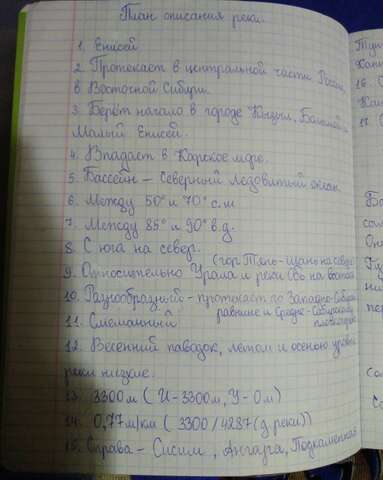 План описания реки.
1. Енисей
2. Протекает в центральной части России,
в Восточной Сибири.
3. Берёт начало в городе Кызыл, Большой и
Малый Енисей.
4. Впадает в Карское море.
5. Бассейн – Северный Ледовитый океан.
6. Между 50° и 70° с.ш.
7. Между 85° и 90° в.д.
8. С юга на север.
(гор Тянь-шань на севере
9. Относительно Урала и реки Обь на востоке
10. Разнообразный - протекает по Западно-Сибир
равнине и Средне-Сибирскому
плоскогорью
11. Смешанный
12. Весенний паводок, летом и осенью уровень
реки низкие.
13. 3300м ( И-3300м, У-0м)
14. 0,77м/км ( 3300/4287(д.реки))
15. Справа – Сисим, Ангара, Подкаменная
16.
17.